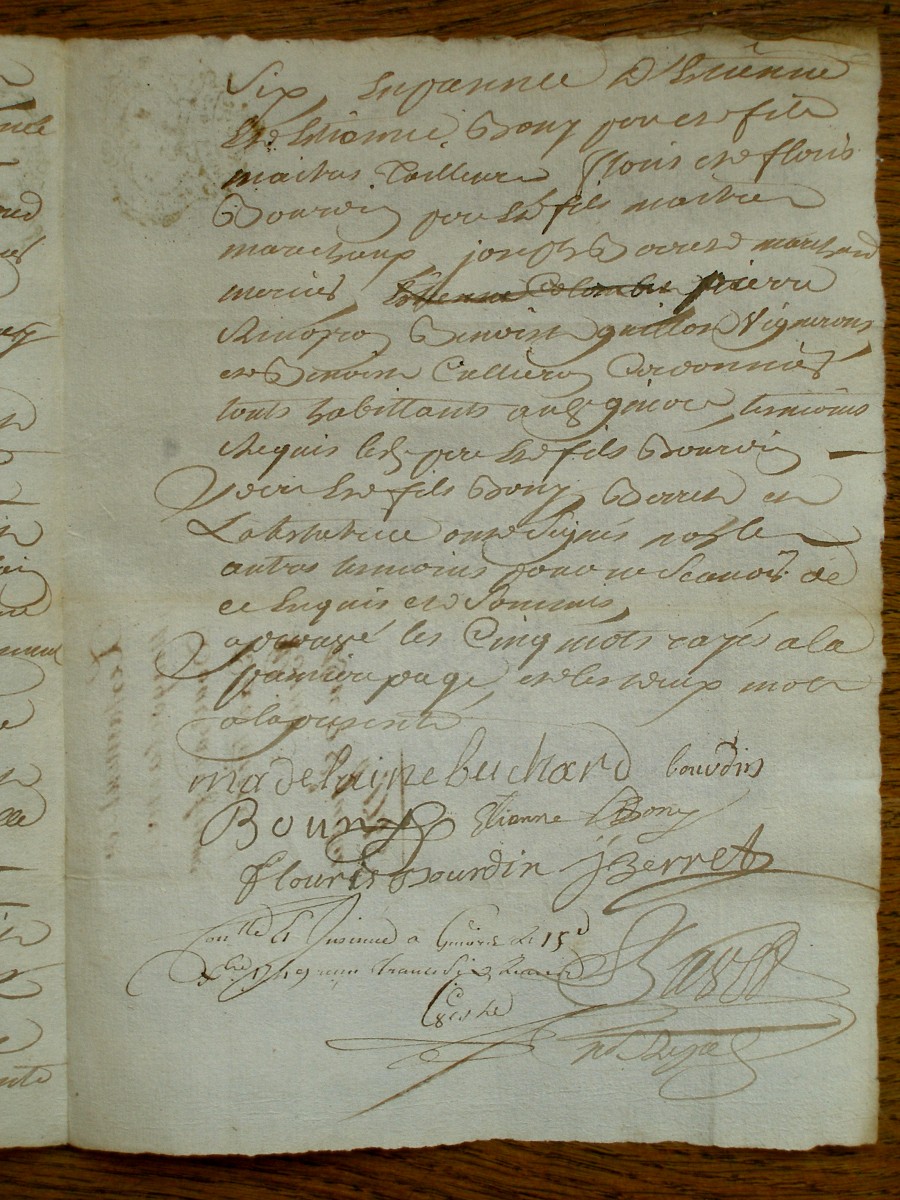 Six En presence D'Etienne
et Etienne Bony pere et fils
maitres Tailleurs flouris et flouris
Bourdin pere et fils maitres
marechaux joseph Berret marchand
mercier Etienne Colombier pierre
Benoist guillot Vignerons
et Benoist Cullieron Cordonnier
touts habittants audt temoins
Requis led. pere et fils Bourdin
pere et fils Bony Berret et
La testatrice ont Signés non les
autres temoins pour ne Scavoir de
ce Enquis et Sommés
aprouvé les Cinq mots rayés a la
premiere page et les deux mots
a la presente
madelaine buchard bourdin
Bouny Etienne Bony
flouris Bourdin jBerret
Conllé et Insinué a le 15e
xbre 1749 reçu francs Six
nore Royal